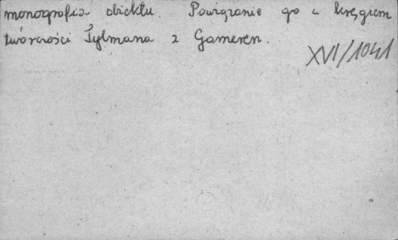 monografia obiektu. Powiązanie go z kręgiem
twórczości Tylmana z Gameren.
XVI/1041